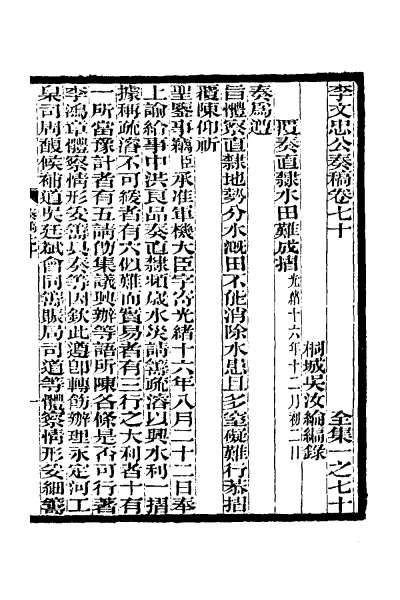 李文忠公奏稿卷七十 全集一之七十
桐城吳汝綸編錄
覆奏直隸水田難成摺 光緒十六年十二月初二日
奏爲遵
旨體察直隸地勢分水溉田不能消除水患且多窒礙難行恭摺
覆陳仰祈
聖鑒事竊臣承准軍機大臣字寄光緒十六年八月二十二日奉
上諭給事中洪良品奏直隸頻成水災請籌疏濬以興水利一摺
據稱疏濬不可緩者有六似難而實易者有三行之大利者十有
一所當豫計者有五請飭集議興辦等語所陳各條是否可行著
李鴻章體察情形妥籌具奏等因欽此遵卽轉飭辦理永定河工
臬司周馥候補道吳廷斌會同籌賑局司道等體察情形妥細籌
奏稿七十
一